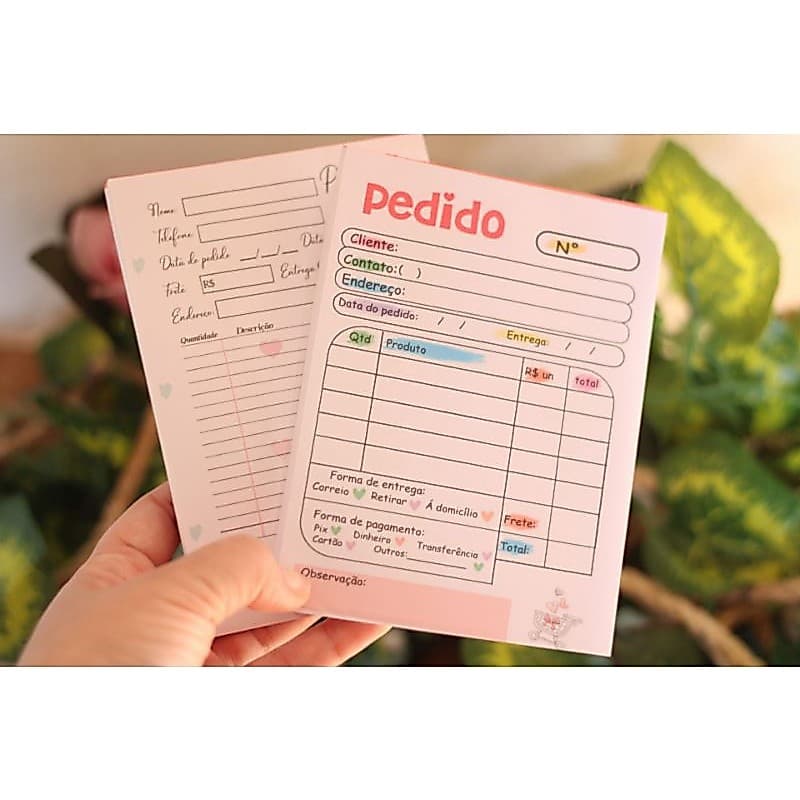 pedido
Nº
Cliente:
Contato:( )
Endereço:
Data do pedido: / / Entrega: / /
Qtd Produto R$ un total
Forma de entrega:
Correio Retirar Á domicílio
Frete:
Forma de pagamento:
Pix Dinheiro Transferência
Cartão Outros:
Total:
Observação:
P
Nome:
Telefone:
Data do pedido __/__/__ Data
Frete R$ Entrega
Endereco:
Quantidade Descrição